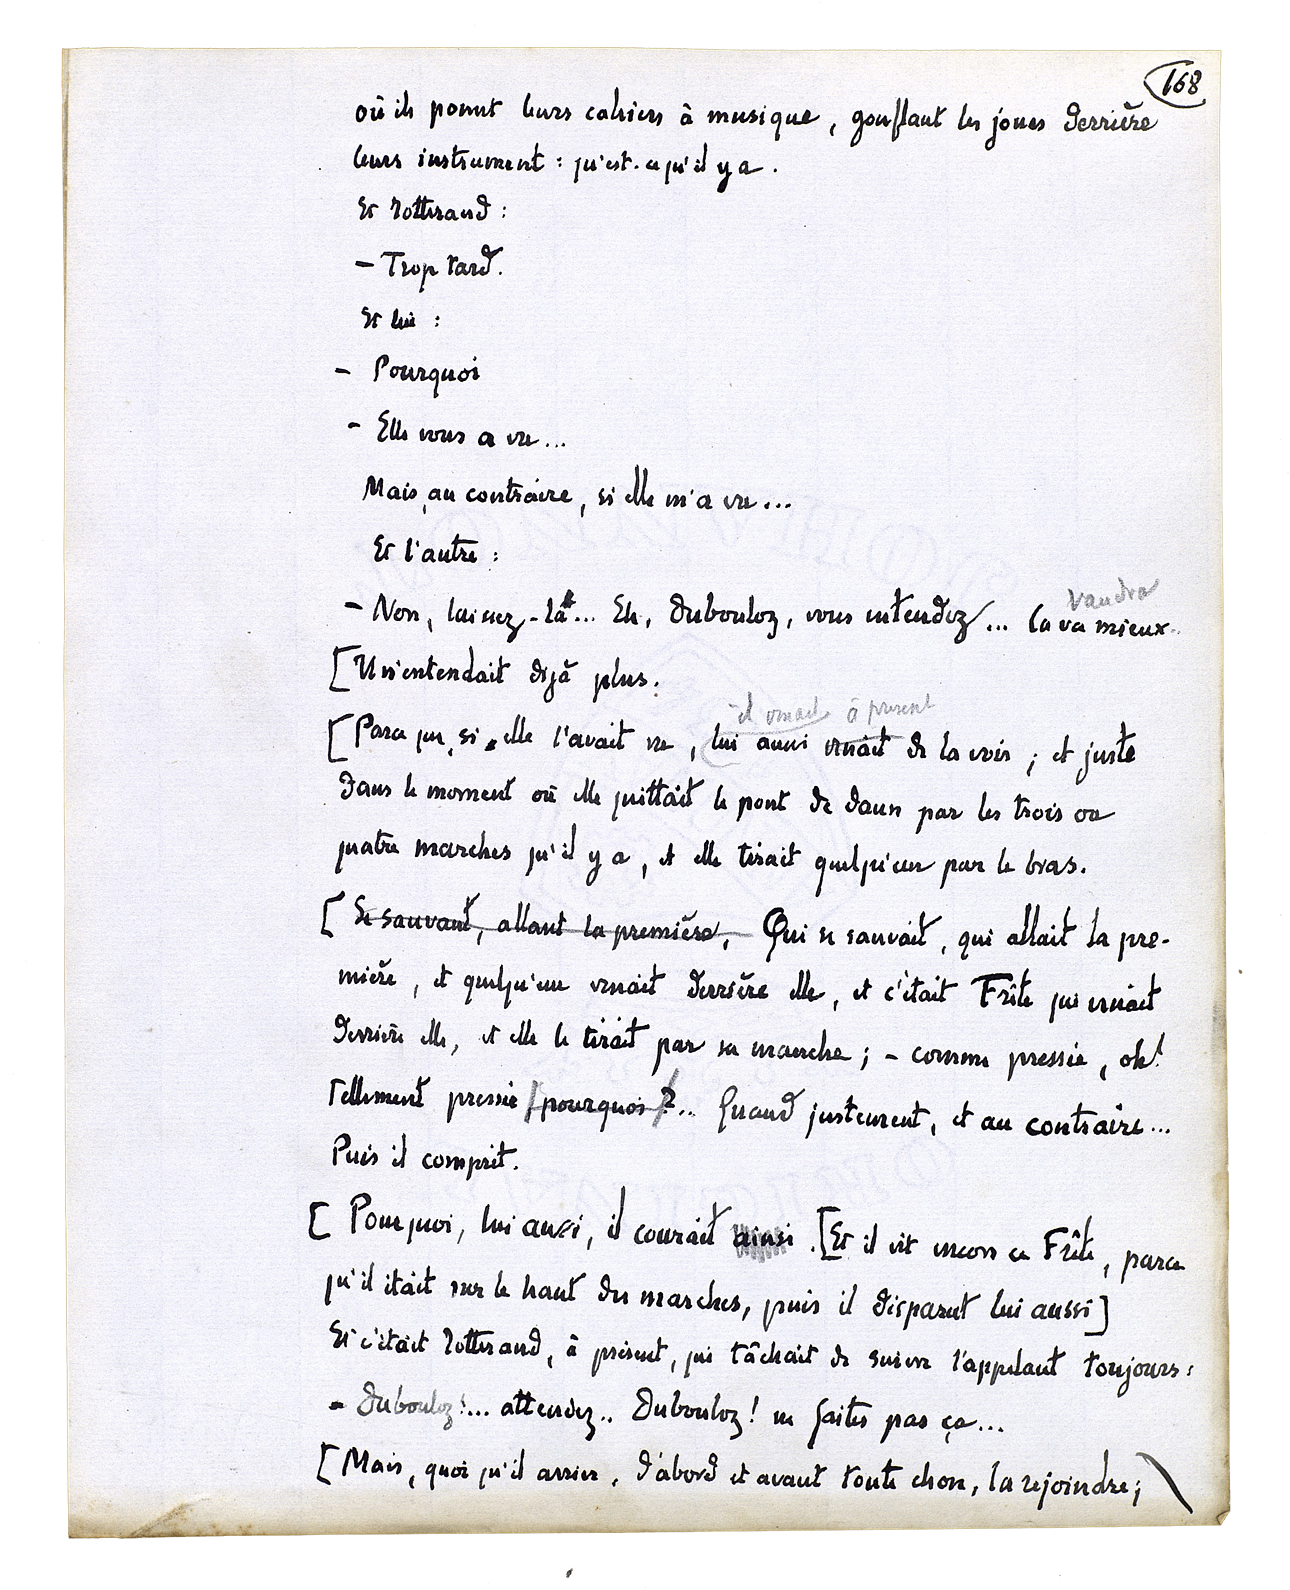 168
où ils posent leurs cahiers à musique, gonflant les joues derrière
leurs instrument : qu'est-ce qu'il y a.
Et Rotterand :
– Trop tard.
Et lui :
– Pourquoi
– Elle vous a vu...
Mais, au contraire, si elle m'a vu...
Et l'autre :
vaudra
– Non, laissez-là... Eh, Dubouloz, vous entendez... Ça va mieux..
[Il n'entendait déjà plus.
il venait à présent
[Parce que, si elle l'avait vu, lui aussi venait de la voir ; et juste
dans le moment où elle quittait le pont de danse par les trois ou
quatre marches qu'il y a, et elle tirait quelqu'un par le bras.
[ Se sauvant, allant la première, Qui se sauvait, qui allait la pre-
mière, et quelqu'un venait derrière elle, et c'était Frête qui venait
derrière elle, et elle le tirait par sa manche ; – comme pressée, oh!
tellement pressée / pourquoi /?... Quand justement, et au contraire...
Puis il comprit.
[ Pourquoi, lui aussi, il courait ainsi. [Et il vit encore ce Frête, parce
qu'il était sur le haut des marches, puis il disparut lui aussi]
Et c'était Rotterand, à présent, qui tâchait de suivre l'appelant toujours :
– Dubouloz!... attendez.. Dubouloz! ne faites pas ça...
[ Mais, quoi qu'il arrive, d'abord et avant toute chose, la rejoindre;